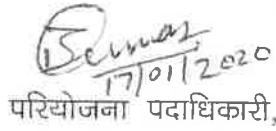 17/01/2020
परियोजना पदाधिकारी,